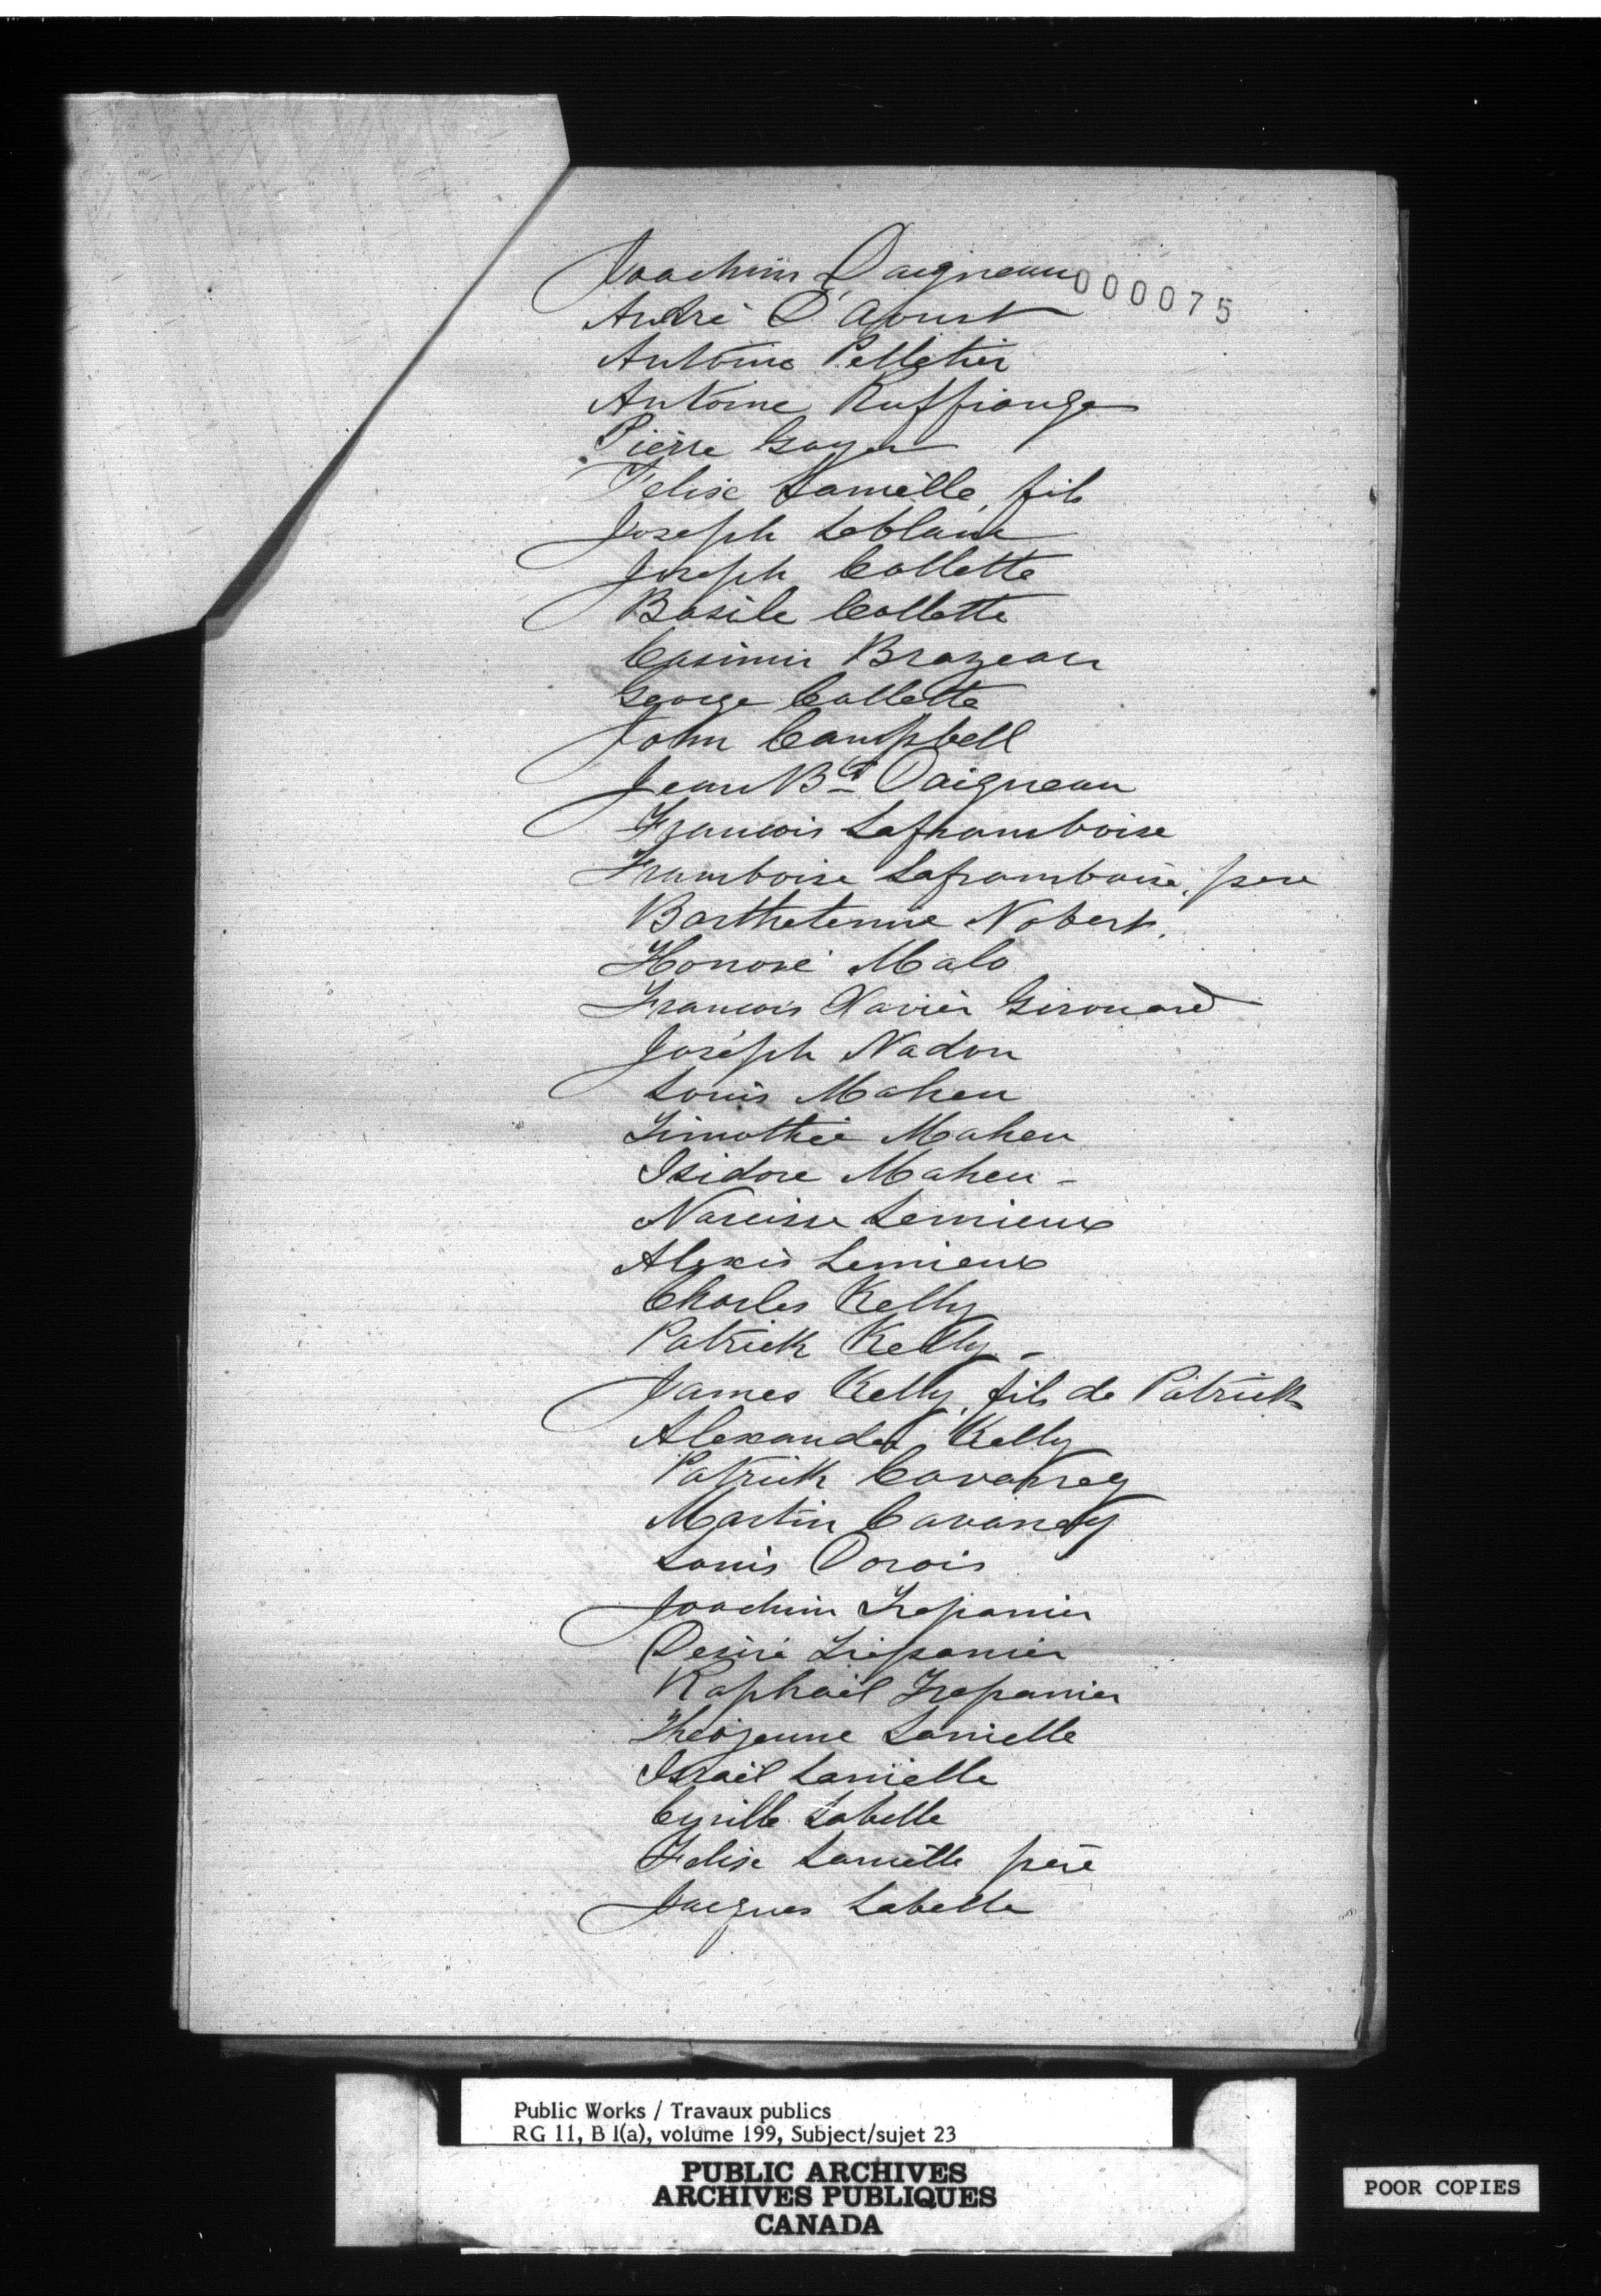 Joachim Daigneau
000075
André D'Aoust
Antoine Pelletier
Antoine Ruffiange
Pièrre Goyer
Félise Lamèlle, fils
Joseph Leblanc
Joseph Collette
Basile Collette
Casimir Brazeau
George Collette
John Campbell
Jean Bte Daigneau
Francois Laframboise
Framboise Laframboise, père
Barthelemie Nobert.
Honoré Malo
Francois Xavièr Girouard
Joséph Nadon
Louis Maheu
Timothée Maheu
Isidore Maheu -
Narcisse Lemieux
Alexis Lemieux
Charles Kelly
Patrick Kelly -
James Kelly, fils de Patrick
Alexander Kelly
Patrick Cavaney
Martin Cavaney
Louis Dorois
Joachim Trepanier
Desiré Trépanier
Raphaël Trepanier
Lamielle
Israël Lamielle
Cyrille Labelle
Felise Lamielle père
Jacques Labelle
Public Works / Travaux publics
RG 11, B 1(a), volume 199, Subject/sujet 23
PUBLIC ARCHIVES
ARCHIVES PUBLIQUES
CANADA
POOR COPIES